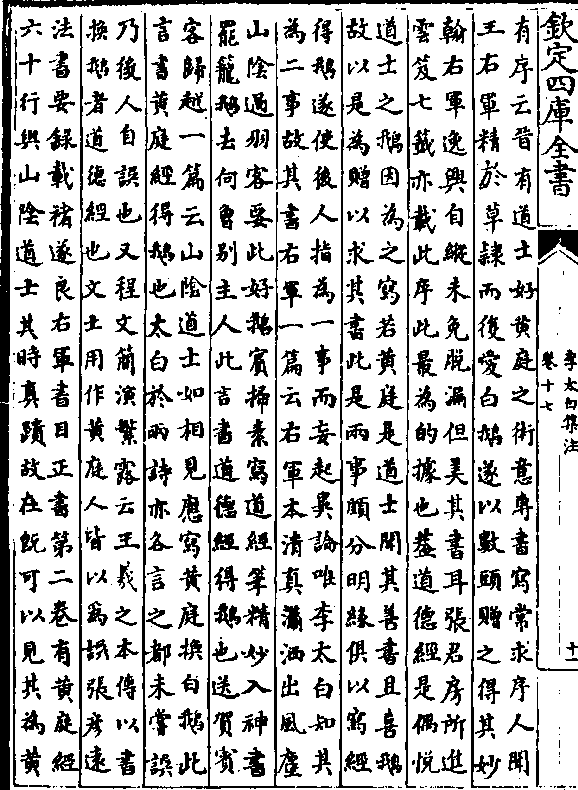 欽定四庫全書
李太白集注
卷十七
十一
有序云昔有道士好黃庭之術意專書寫常求序人聞
王右軍精於草隸而復愛白鵝遂以數頭贈之得其妙
翰右軍逸興自縱未免脫漏但美其書耳張君房所進
雲笈七籤亦載此序此最為的據也蓋道德經是偶悅
道士之鵝因為之寫若黃庭是道士聞其善書且喜鵝
故以是為贈以求其書此是兩事頗分明緣俱以寫經
得鵝遂使後人指為一事而妄起異論唯李太白知其
為二事故其書右軍一篇云右軍本清真瀟洒出風塵
山陰過羽客要此好鵝賔掃素寫道經筆精妙入神書
罷籠鵝去何曾别主人此言書道德經得鵝也送賀賔
客歸越一篇云山陰道士如相見應寫黃庭換白鵝此
言書黃庭經得鵝也太白於兩詩亦各言之都未嘗誤
乃後人自誤也又程文簡演繁露云王羲之本傳以書
換鵝者道德經也文士用作黃庭人皆以為誤張彥遠
法書要錄載褚遂良右軍書目正書第二卷有黃庭經
六十行與山陰道士其時真蹟故在既可以見其為黃